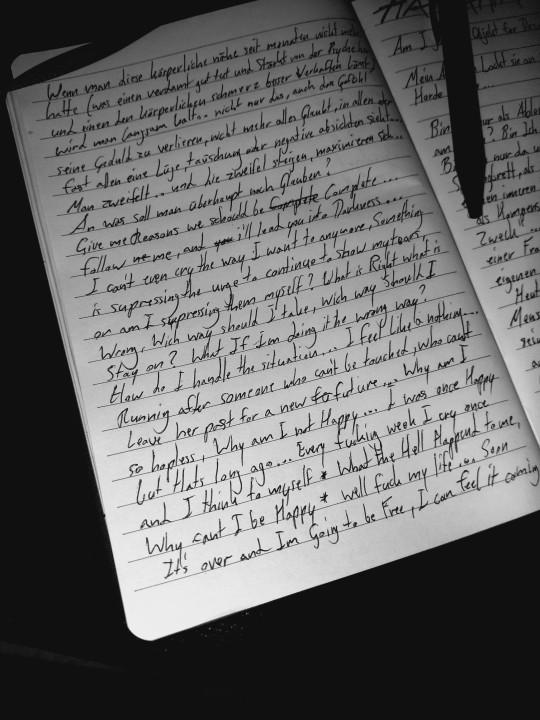 Wenn man diese körperliche nähe seit monaten nicht mehr
hatte (was einen verdamt gut tut und Stärkt von der Psyche her
und einen den körperlichen schmerz besser Verkraften lässt)
wird man langsam kalt.. nicht nur das, auch das Gefühl
seine Geduld zu verlieren, nicht mehr alles Glaubt, in allen oder
fast allen eine Lüge, täuschung oder negative absichten sieht...
Man zweifelt... und die zweifel steigen, maximieren sich...
An was soll man überhaupt noch Glauben?
Give me Reasons we schould be Complete...
follow me, and i'll lead you into Darkness...
I can't even cry the way I want to anymore, Something
is suppressing the urge to continue to show my tears,
or am I suppressing them myself? What is Right what is
Wrong, Wich way should I take, wich way should I
Stay on? What If Im doing it the wrong way?
How do I handle the situation... I feel like a nothing...
Running after someone who cant be touched, who cant
Leave her past for a new future... Why am I
so hopless, Why am I not Happy... I was once Happy
but thats long ago... Every fucking week I cry once
and I think to myself * What the Hell Happend to me,
Why cant I be Happy * well fuck my life... Soon
It's over and Im Going to be Free, I can feel it coming
Am I Objekt for
Mein Lockt sie an
Horde
Bin nur als Ablen
am ? Bin Ich
nur da
als
inneren
als Kompens
Zweck
einer Fra
eigenen
Heut
Mens